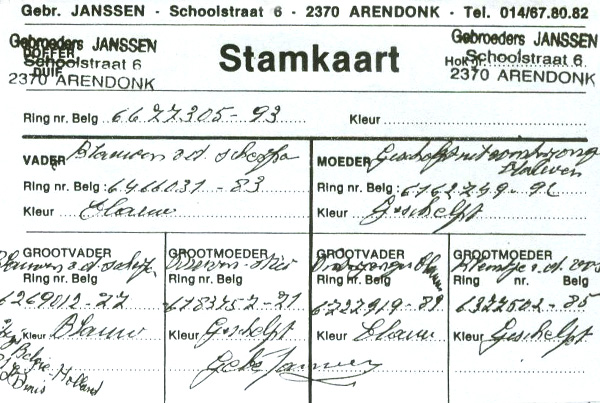 Gebr. JANSSEN - Schoolstraat 6 - 2370 ARENDONK - Tel. 014/67.80.82
Gebroeders JANSSEN
DOFFER
Schoolstraat 6
DUIF
2370 ARENDONK
Stamkaart
Gebroeders JANSSEN
Hok nr. Schoolstraat 6
2370 ARENDONK
Ring nr. Belg 6627305-93 Kleur
VADER Blauwen a.d. schapa
Ring nr. Belg : 6466031-83
Kleur Blauw
MOEDER Geschelpt
Ring nr. Belg : 6162749-92
Kleur Geschelpt
GROOTVADER
Blauwen a.d.
Ring nr. Belg
6269012-77
Kleur Blauw
GROOTMOEDER
Ring nr. Belg
6783757-71
Kleur Geschelpt
GROOTVADER
Ring nr. Belg
6722919-89
Kleur Blauw
GROOTMOEDER
Ring nr. Belg
6327502-85
Kleur Geschelpt
Belgie-Holland
Gebr Janssen